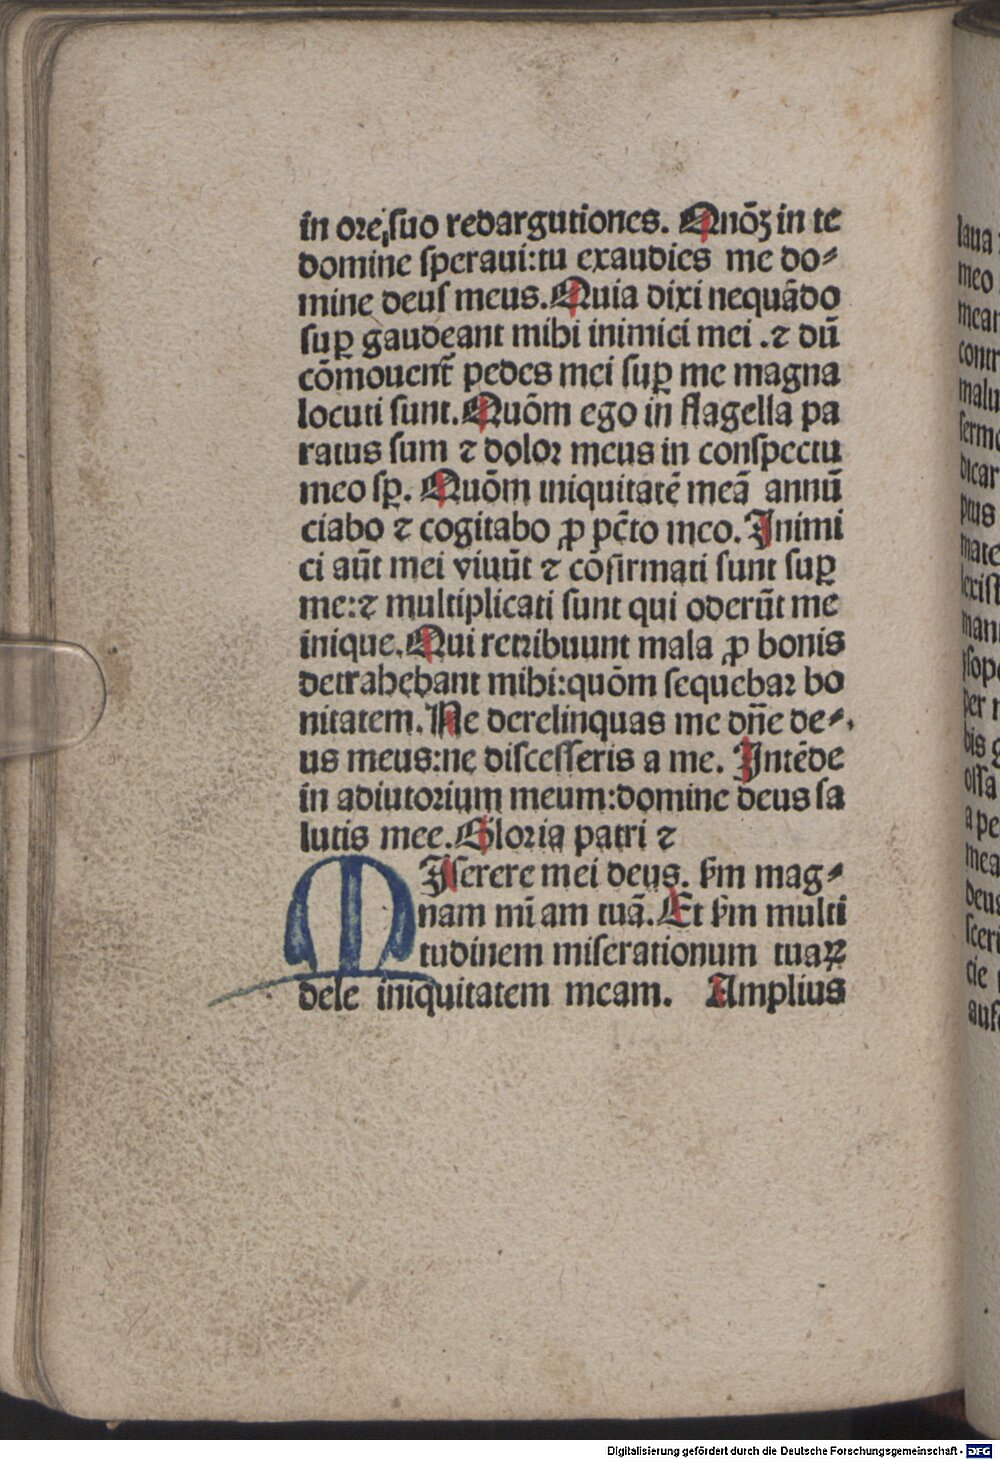 in ore ſuo redargutiones. Qnōꝫ in te
domine ſperaui:tu exaudies me do⸗
mine deuſ meus. Quia dixi nequādo
ſuꝑ gaudeant mihi inimici mei .⁊ dū
cōmouent̄ pedes mei ſuꝑ me magna
locuti ſunt. Quōm ego in flagella pa
ratus ſum ⁊ dolor meus in conſpectu
meo ſꝑ. Quōm iniquitatē meā annū
ciabo ⁊ cogitabo ꝓ pc̄to meo. Inimi
ci aūt mei viuūt ⁊ cōfirmati ſunt ſuꝑ
me:⁊ multiplicati ſunt qui oderūt me
inique. Qui retribuunt mala ꝓ bonis
detrahebant mihi:quōm ſequebar bo
nitatem. Ne derelinquas me dn̄e de⸗
us meus:ne diſceſſeris a me. Intēde
in adiutorium meum:domine deus ſa
lutis mee. Gloria patri ⁊
MIſerere mei deus. ẜm mag⸗
nam mi̅am tuā. Et ẜm multi
tudinem miſerationum tuaꝝ
dele iniquitatem meam. Amplius
laua
meo
mean
contr
malu
ſermo
dicar
ptus
mate
lexiſt
mani
yſopo
per n
bis g
oſſa
a pe
mea
deus
ſceri
cie
auf
Digitalisierung gefördert durch die Deutsche Forschungsgemeinschaft - DFG